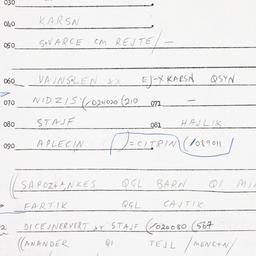 030
040 KARSN
050 SWARCE CM REJTE/—
060 VAJNSLEN XX EJ-X KARSN QSYN
070 NIDZIS (/024020 (210 071 —
080 STAJF 081 HAJLIK
090 APLECIN )=CITRIN (/089011
QGL BARN QI MIN
FARTIK QGL CAJTIK
2 DICEJNERVERT XX STAJF (/020080 (567
((ANANDER QI TEJL /MENCN/